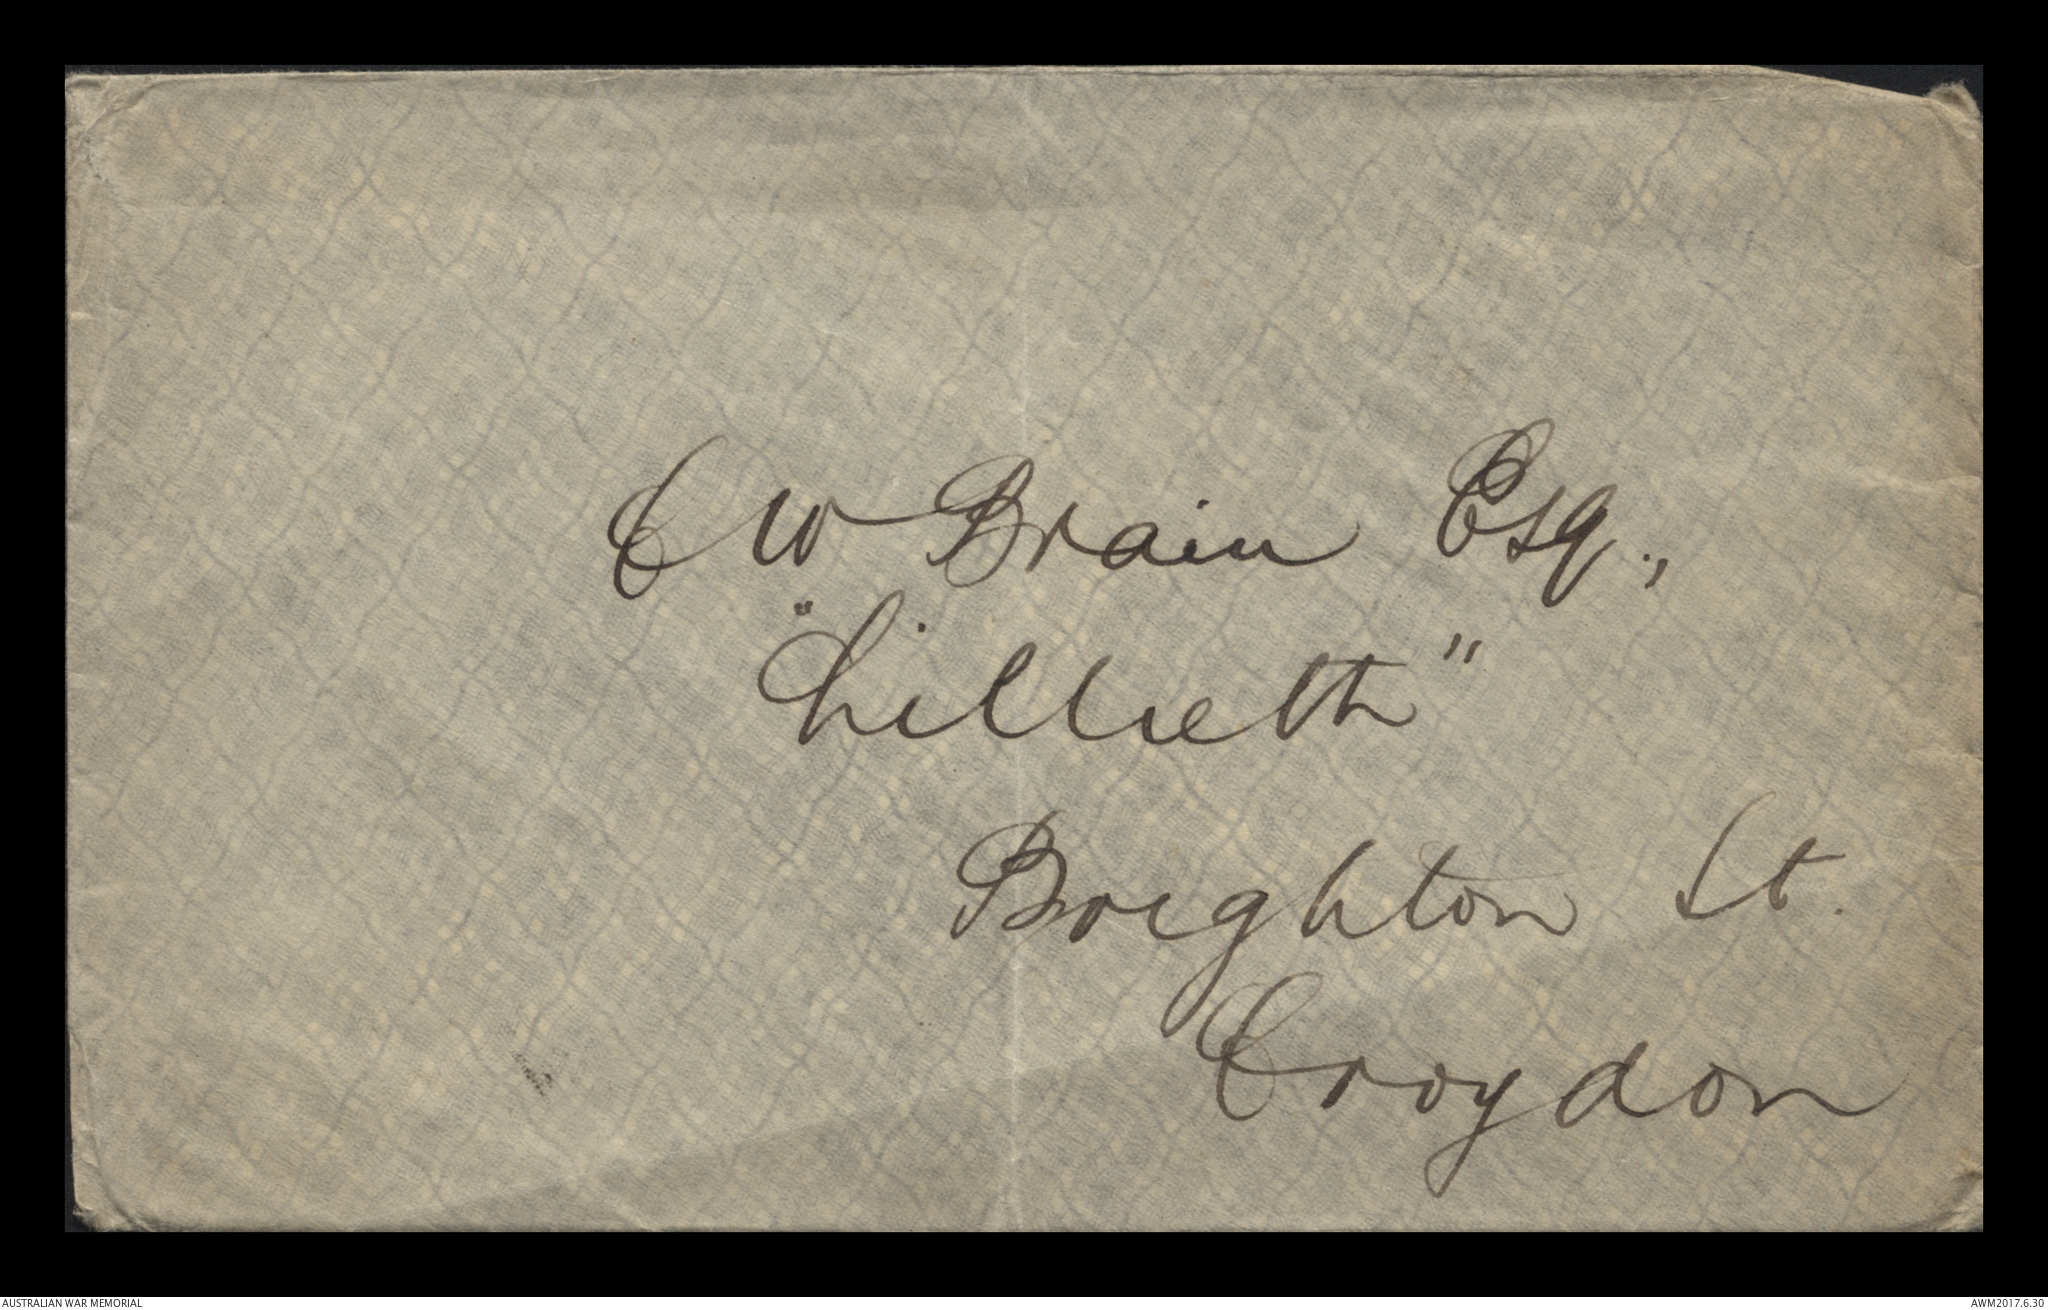 C W Brain Esq.,
"Lillieth"
Brighton St.
Croydon
AUSTRALIAN WAR MEMORIAL
AWM2017.6.30